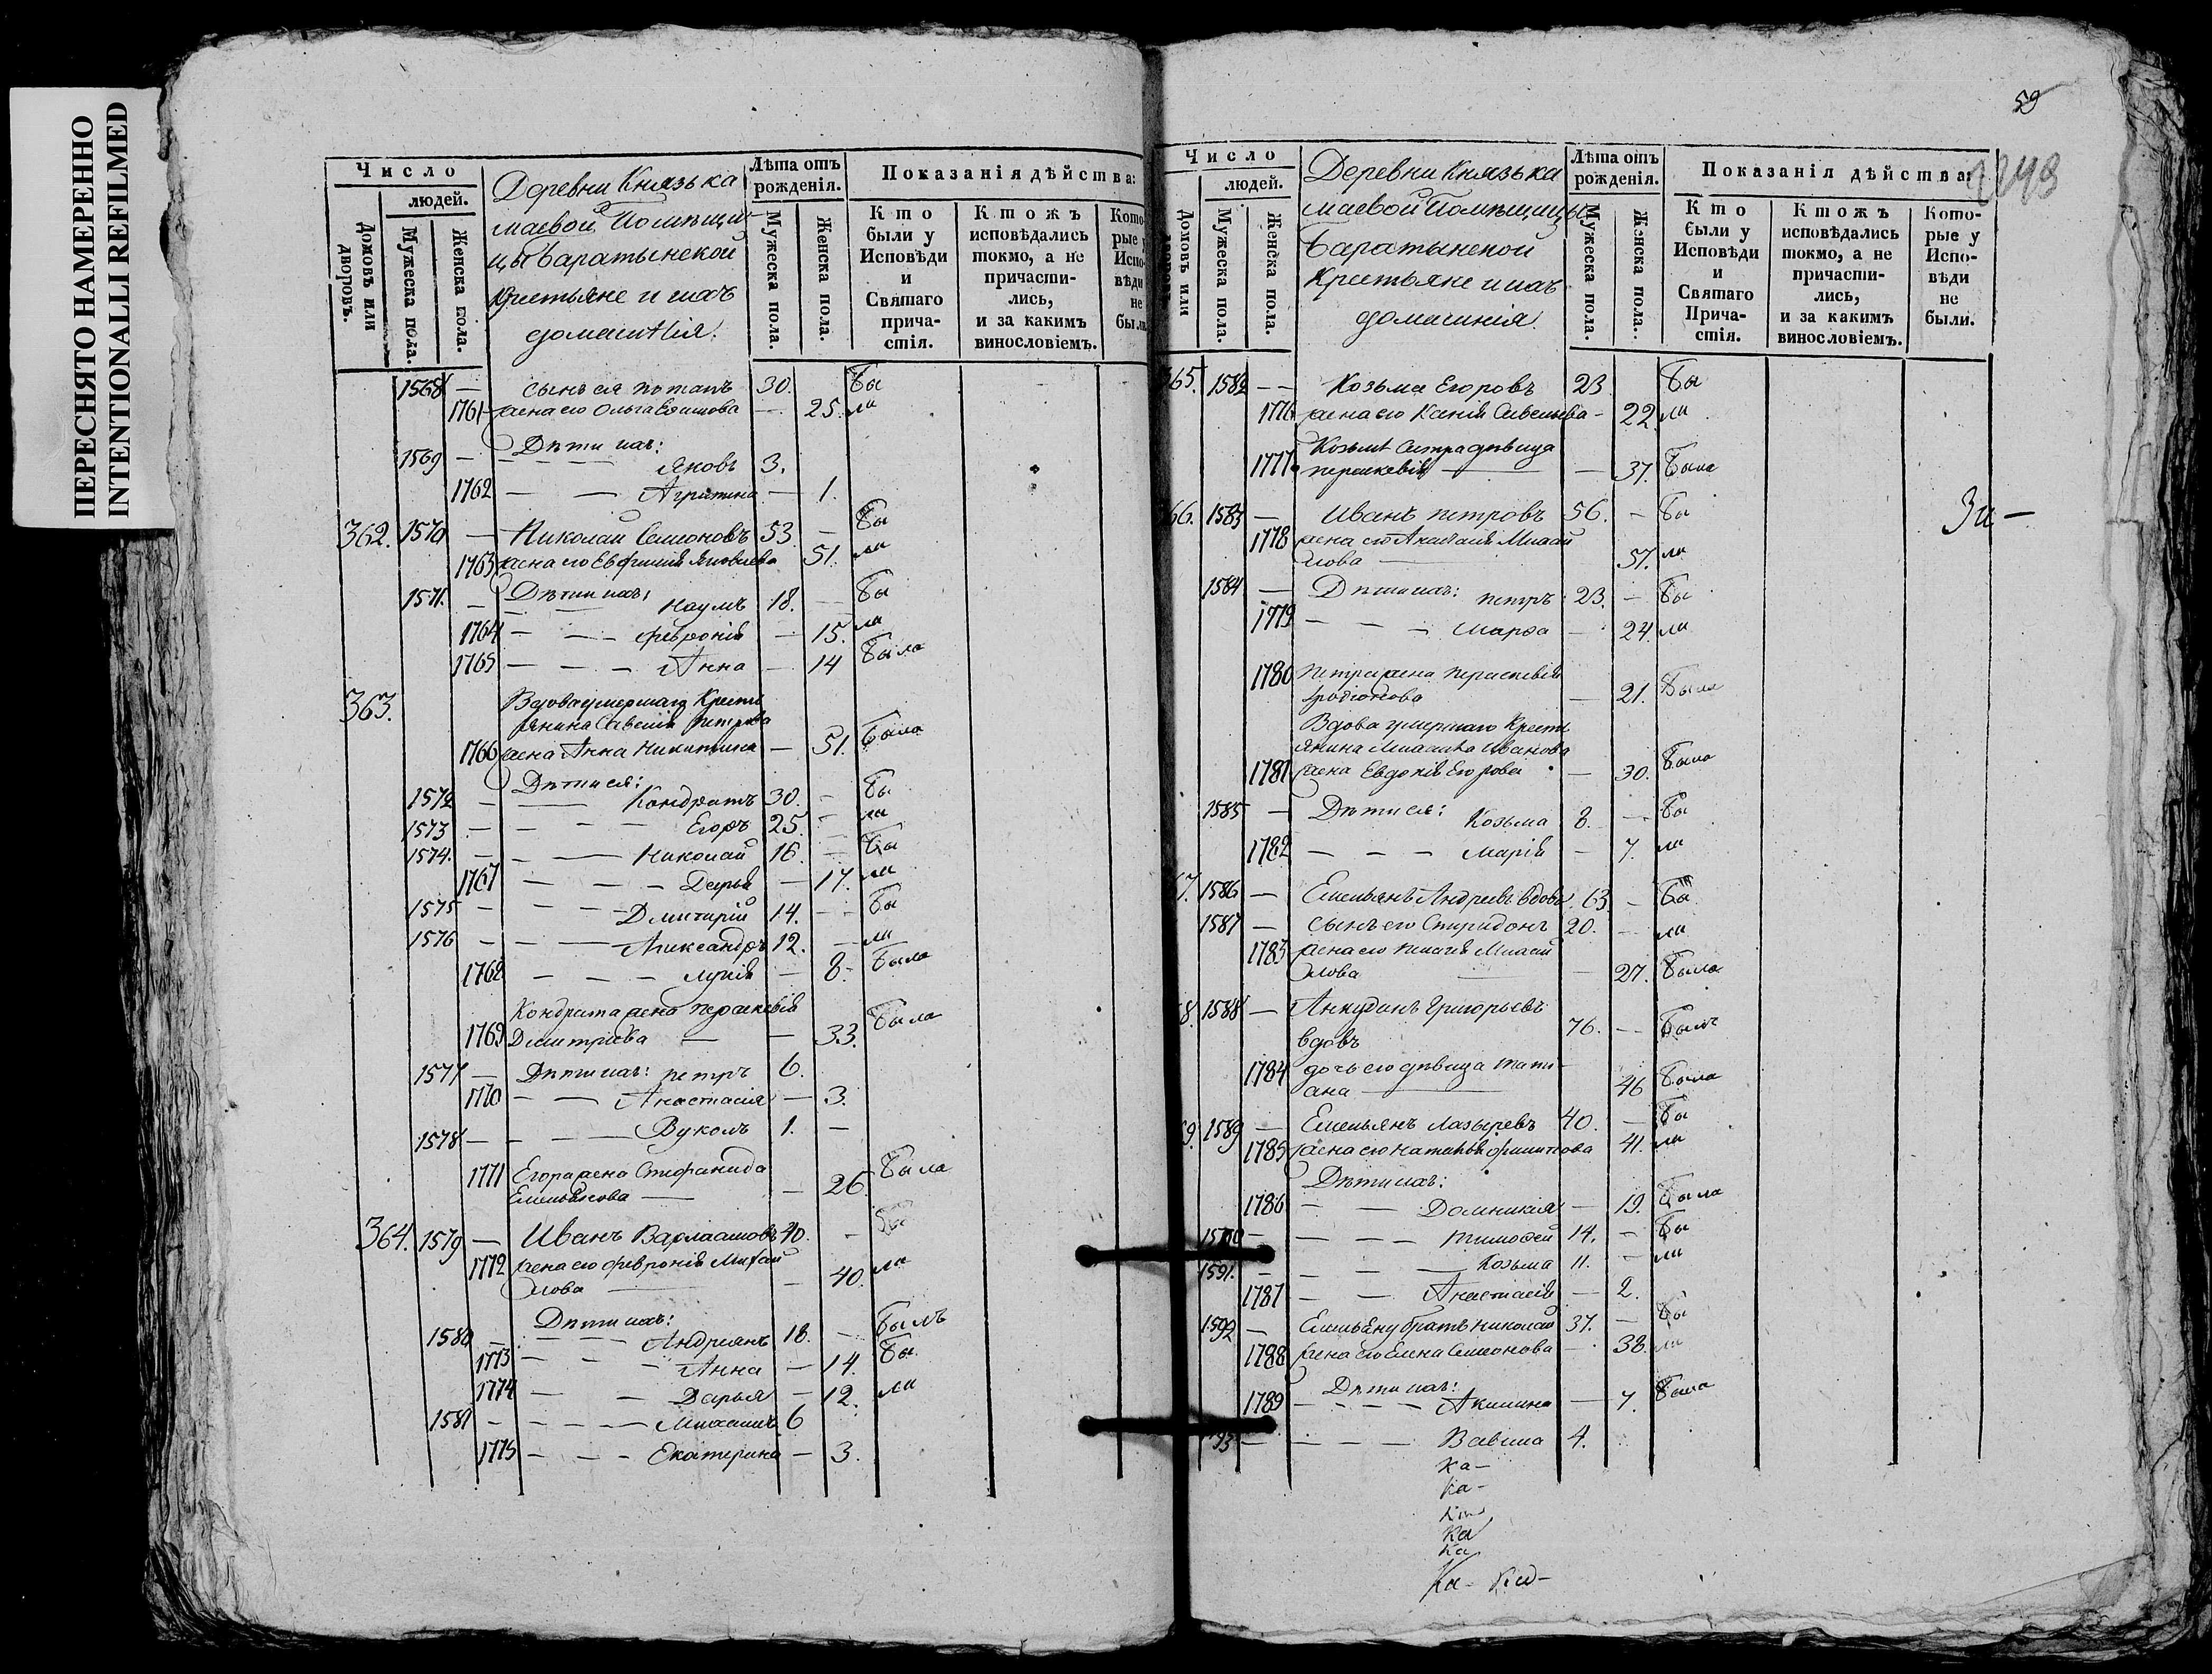 ПЕРЕСНЯТО НАМЕРЕННО
INTENTIONALLI REFILMED
Число
людей.
Домовъ или дворовъ.
Мужеска пола.
Женска пола.
Деревни Князька
маевой Помѣщи-
цы Баратынской
Крестьяне и ихъ
домашнія.
Лѣта отъ рожденія.
Мужеска пола.
Женска пола.
Показанія дѣйства:
Кто были у Исповѣди и Святаго прича-стія.
Ктожъ исповѣдались токмо, а не причасти-лись, и за какимъ винословіемъ.
Кото-рые у Испо-вѣди не были
1568 — сынъ ея Потапъ 30. Бы
1761 жена его Ольга — 25. ли
1569 — Дѣти ихъ: Яковъ 3.
1762 — — Агрипина — 1.
362. 1570 — Николай Семеновъ 53. — Бы
1763 жена его Евфимія Яковлева 51. ли
1571. — Дѣти ихъ: Наумъ 18. — Бы
1764 — — Февронія — 15. ли
1765 — — — Анна — 14 Была
363. Вдова умершаго Кресть
янина Савелія Петрова
1766 жена Анна Никитина — 51. Была
Дѣти ея:
1572 — — Кондратъ 30. — Бы
1573 — — — Егоръ 25. — ли
1574. — — Николай 16. — Бы
1767 — — — Дарья — 17. ли
1575 — — — Дмитрій 14. — Бы
1576 — — — Александръ 12. — ли
1768 — — — Лукія — 8. Была
Кондрата жена Параскевія
1769 Дмитріева — — 33. Была
1577 — Дѣти ихъ: Петръ 6.
1770 — — Анастасія — 3.
1578 — — — Вуколъ 1. —
1771 Егора жена Стефанида
Емельянова — — 26. Была
364. 1579 — Иванъ Варлаамовъ 40. — Бы
1772 жена его Февронія Михай
лова — — 40. ли
Дѣти ихъ:
1580 — — — Андреянъ 18. — Былъ
1773 — — — Анна — 14. Бы
1774 — — Дарья — 12. ли
1581 — — — — Михаилъ 6
1775 — — — Екатерина — 3.
59
Число
людей.
Домовъ или
Мужеска пола.
Женска пола.
Деревни Князька
маевой Помѣщицы
Баратынской
Крестьяне и ихъ
домашнія.
Лѣта отъ рожденія.
Мужеска пола.
Женска пола.
Показанія дѣйства:
Кто были у Исповѣди и Святаго Прича-стія.
Ктожъ исповѣдались токмо, а не причасти-лись, и за какимъ винословіемъ.
Кото-рые у Испо-вѣди не были.
365. 1582 — — Козьма Егоровъ 23 Бы
1776 жена его Ксенія Савельева — 22 ли
Козьмы сестра дѣвица
1777 Параскевія — — 37. Была
66. 1583 — Иванъ Петровъ 56. — Бы
1778 жена его Анастасія Михай
лова — 57. ли
1584 — Дѣти ихъ: Петръ 23. — Бы
1779 — — — Марѳа — 24. ли
1780 Петра жена Параскевія
Иродіонова — 21. Была
Вдова умершаго Кресть
янина Михаила Иванова
1781 жена Евдокія Егорова — 30. Была
1585 — Дѣти ея: Козьма 8. — Бы
1782 — — — Марія — 7. ли
7. 1586 — Емельянъ Андреевъ вдовъ 63. — Бы
1587 — сынъ его Спиридонъ 20. — ли
1783 жена его Пелагія Михай
лова — — 27. Была
8. 1588 — Анкудинъ Григорьевъ
вдовъ 76. — Былъ
1784 дочь его дѣвица Тати-
ана — 46 Была
9. 1589 — Емельянъ Лазыревъ 40. — Бы
1785 жена его Наталія Филипова 41. ли
Дѣти ихъ:
1786 — — Домникія — 19. Была
1590 — — — — Тимоѳей 14. — Бы
1591. — — — — Козьма 11. — ли
1787 — — Анастасія — 2.
1592 — Емельяну братъ Николай 37. — Бы
1788 жена его Елена Семенова — 38. ли
Дѣти ихъ:
1789 — — — — Акилина — 7. Была
93 — — — — Вавила 4.
Ка-
Ка-
Ка
Ка
Ка-